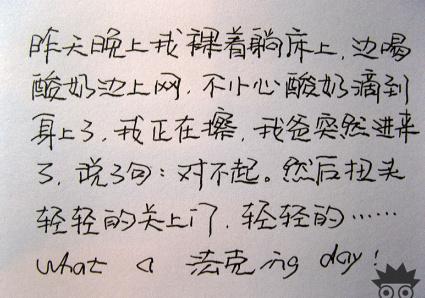 昨天晚上我裸着躺床上，边喝
酸奶边上网，不小心酸奶滴到
身上了，我正在擦，我爸突然进来
了，说了句：对不起。然后扭头
轻轻的关上门，轻轻的……
what a 法克ing day！